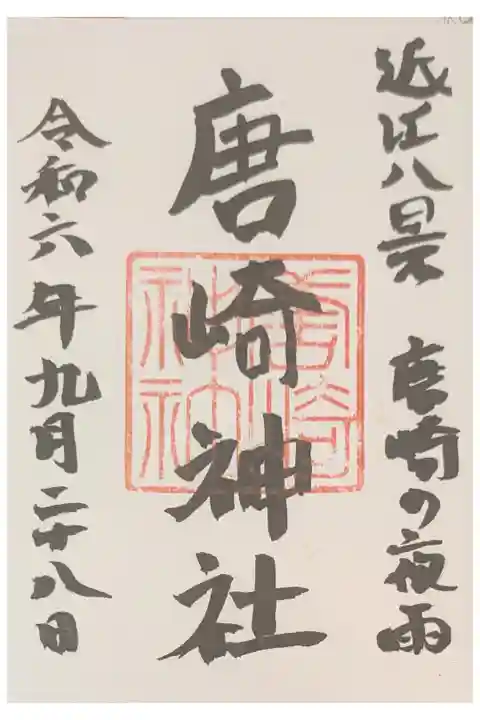 近江八景　唐崎の夜雨
唐崎神社
令和六年九月二十八日
唐崎
神社